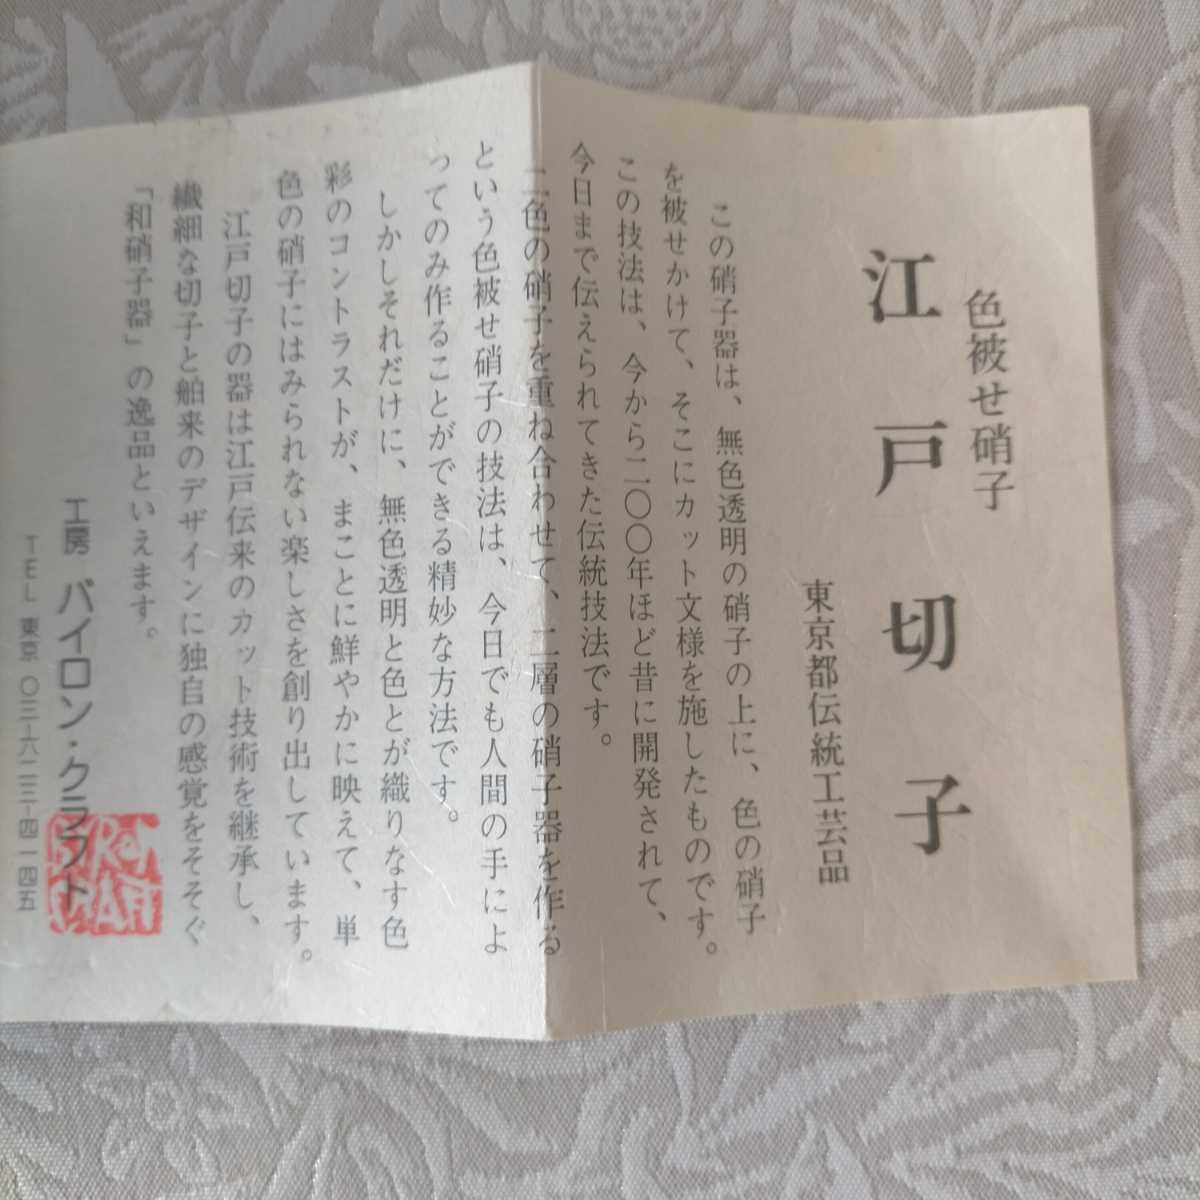 色被せ硝子
江戸切子
東京都伝統工芸品
この硝子器は、無色透明の硝子の上に、色の硝子
を被せかけて、そこにカット文様を施したものです。
この技法は、今から二〇〇年ほど昔に開発されて、
今日まで伝えられてきた伝統技法です。
二色の硝子を重ね合わせて、二層の硝子器を作る
という色被せ硝子の技法は、今日でも人間の手によ
ってのみ作ることができる精妙な方法です。
しかしそれだけに、無色透明と色とが織りなす色
彩のコントラストが、まことに鮮やかに映えて、単
色の硝子にはみられない楽しさを創り出しています。
江戸切子の器は江戸伝来のカット技術を継承し、
繊細な切子と舶来のデザインに独自の感覚をそそぐ
「和硝子器」の逸品といえます。
工房 バイロン・クラフト
TEL 東京 〇三-六二三-四一四五